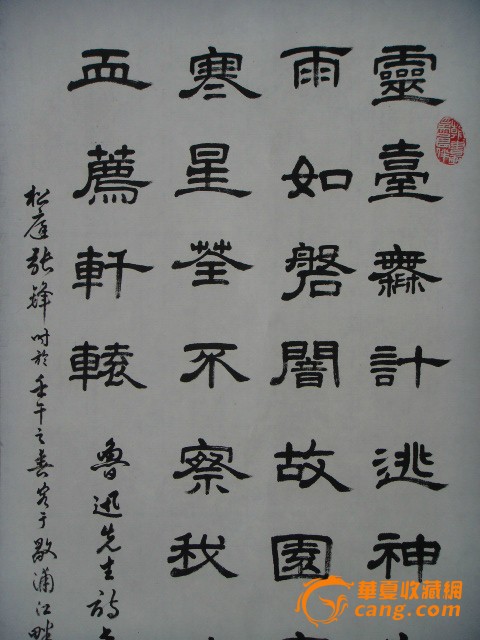 靈臺無計逃神
雨如磐闇故園
寒星荃不察我
血薦軒轅
魯迅先生詩
松庭張鋒时於壬午之春客于歇浦江畔
華夏收藏網
cang.com